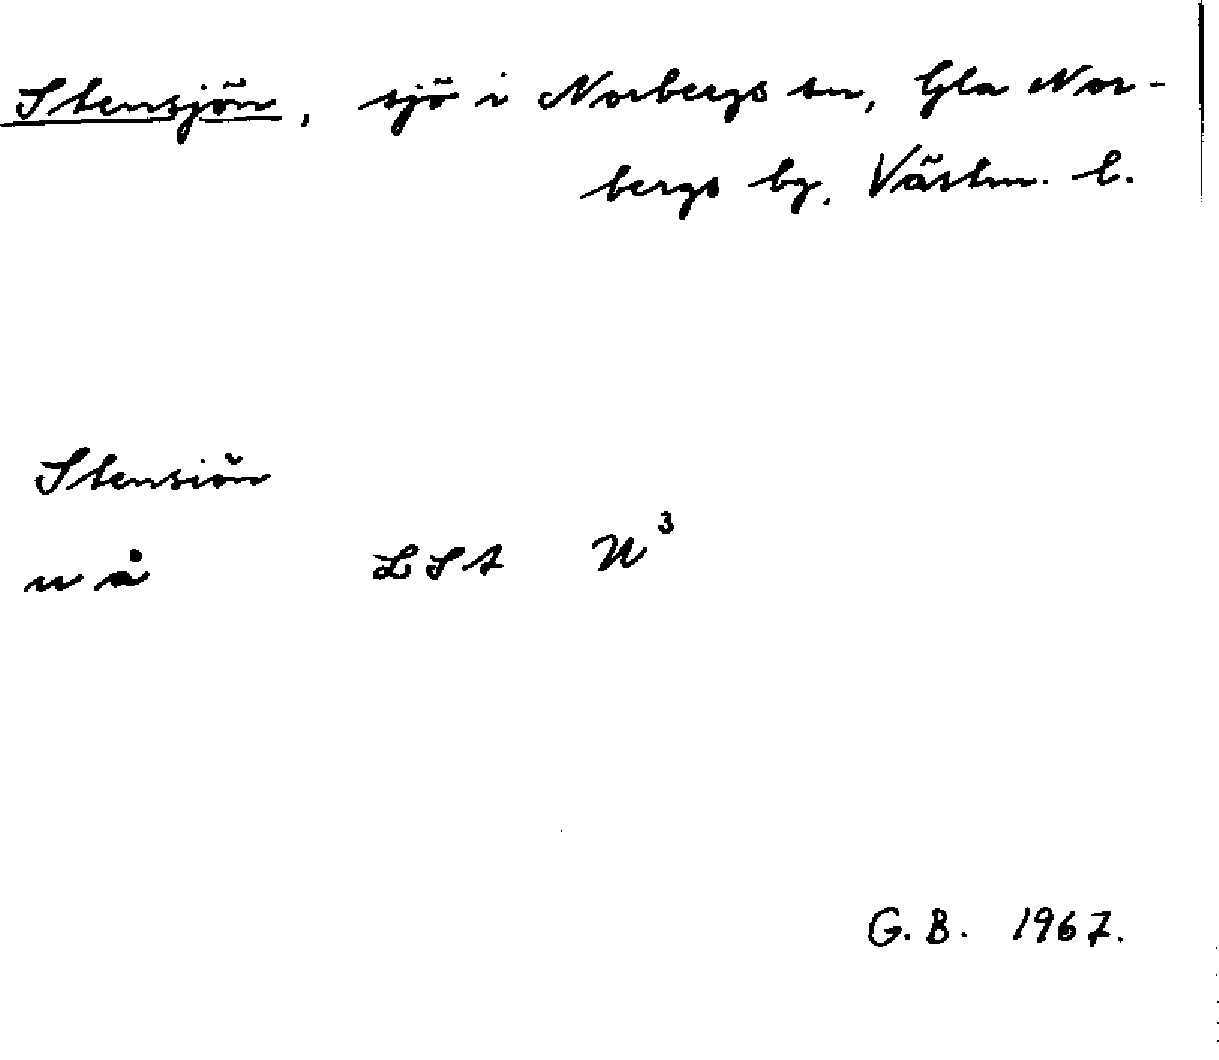 Stensjön, sjö i Norbergs sn, Gla Nor-
bergs by, Västm. l.
Stensiön
u å LSA U³
G. B. 1967.